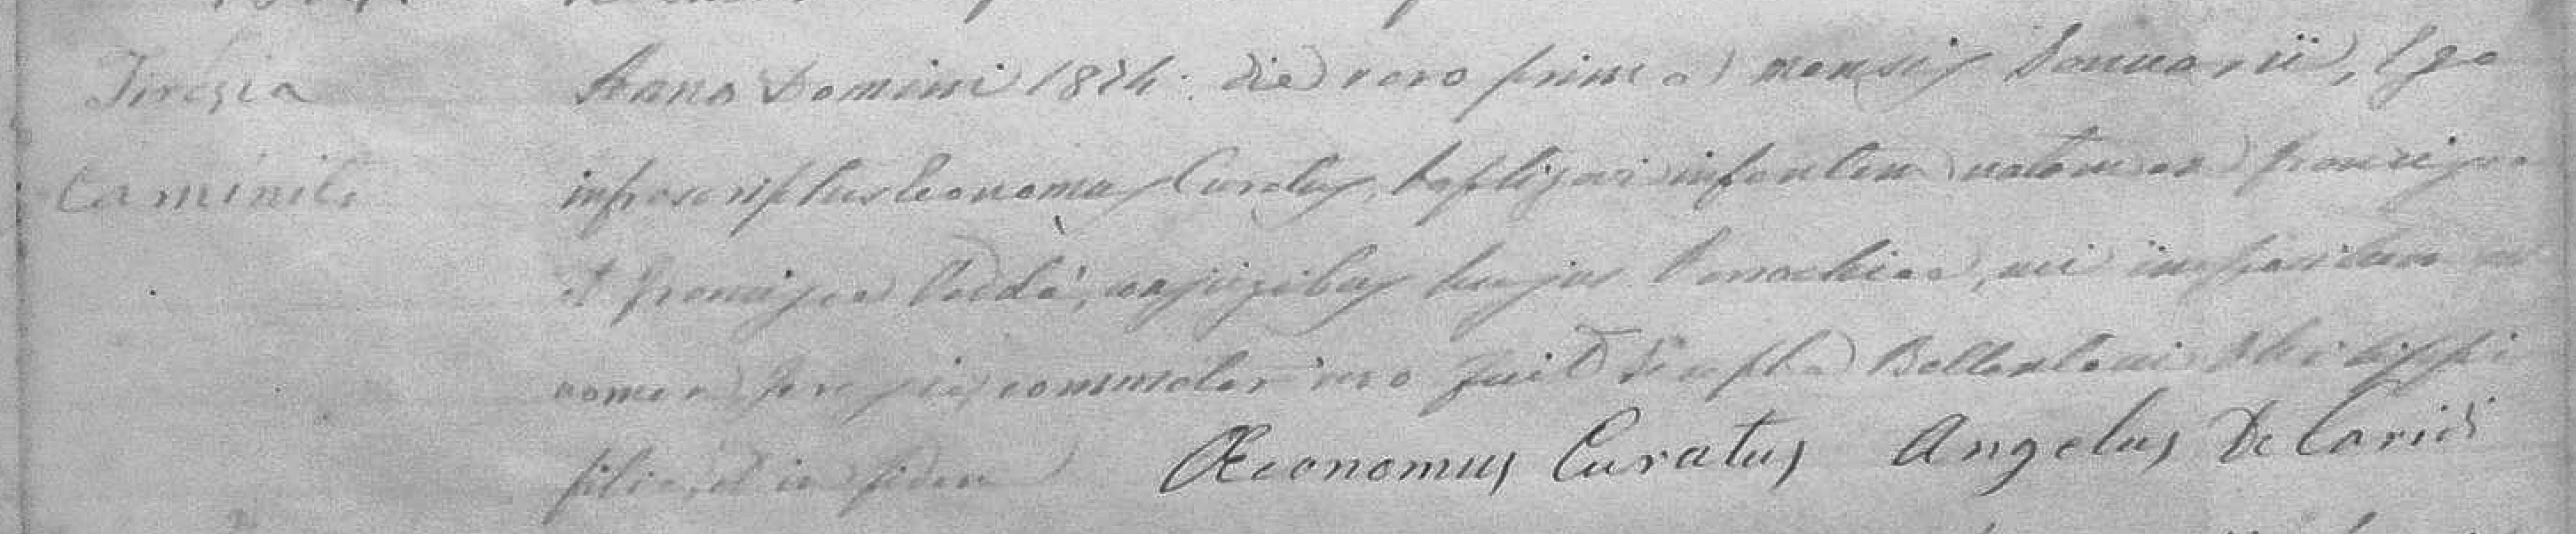 Teresia
Caminiti
Anno Domini 1874: die vero prima mensis Januarii, Ego
infrascriptus Economus Curatus, baptizavi infantem natam ex Francisco
et Francisca Laddà, conjugibus hujus Parochiae, cui impositum est
nomen Teresia, commater vero fuit Josepha Bellantoni Philippi
filia, et in fidem
Œconomus Curatus Angelus De Caridi